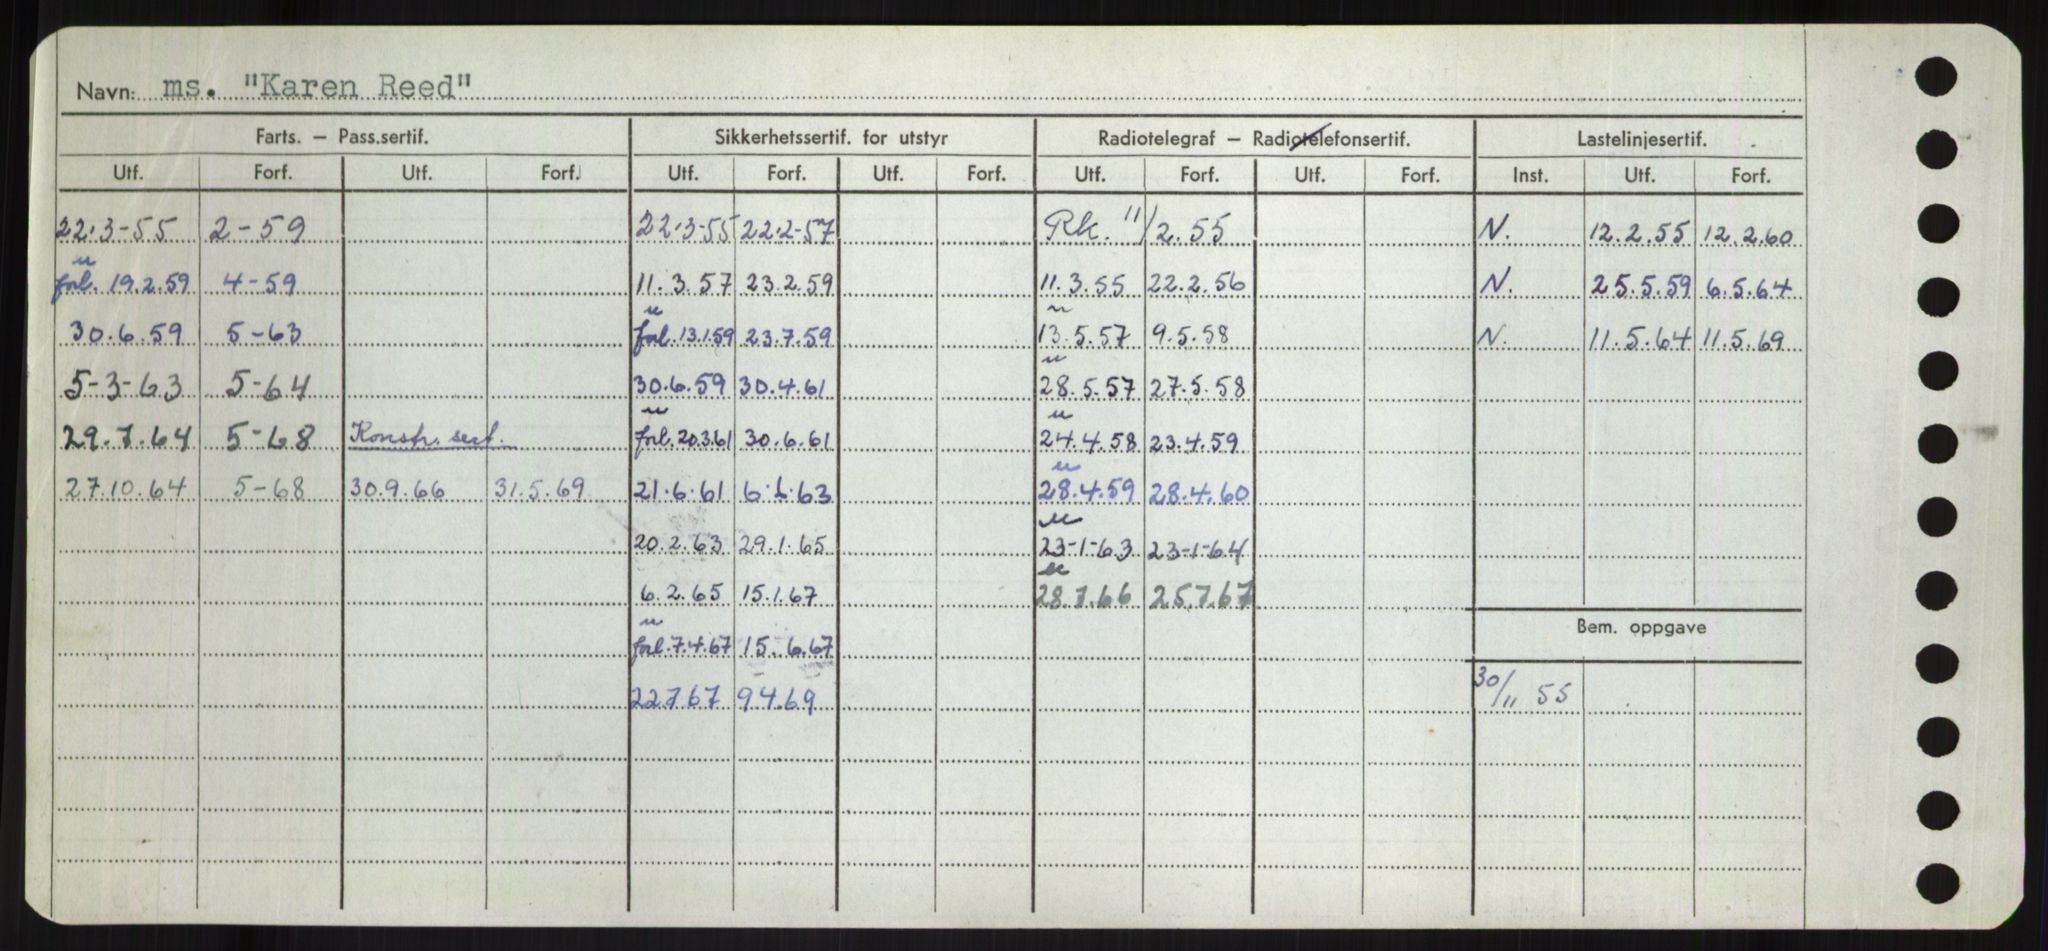 Navn: ms. "Karen Reed"
Farts. — Pass.sertif. Sikkerhetssertif. for utstyr Radiotelegraf — Radiotelefonsertif. Lastelinjesertif.
Utf. Forf. Utf. Forf. Utf. Forf. Utf. Forf. Utf. Forf. Utf. Forf. Inst. Utf. Forf.
22.3-55 2-59 22.3-55 22.2-57 Rk. 11/2.55 N. 12.2.55 12.2.60
forl. 19.2.59 4-59 11.3.57 23.2.59 11.3.55 22.2.56 N. 25.5.59 6.5.64
30.6.59 5-63 forl. 13.1.59 23.7.59 13.5.57 9.5.58 N. 11.5.64 11.5.69
5-3-63 5-64 30.6.59 30.4.61 28.5.57 27.5.58
29.7.64 5-68 Konstr. sert. forl. 20.3.61 30.6.61 24.4.58 23.4.59
27.10.64 5-68 30.9.66 31.5.69 21.6.61 6.1.63 28.4.59 28.4.60
20.2.63 29.1.65 23-1-63 23-1-64
6.2.65 15.1.67 28.7.66 25.7.67
Bem. oppgave
forl. 7.4.67 15.6.67
22.7.67 9.4.69 30/11 55